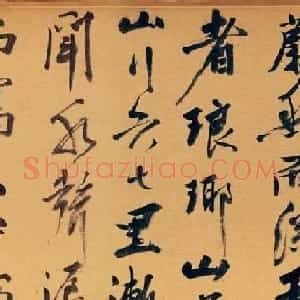 蔚然而深
者琅琊山
山行六七里漸
聞水聲潺
Shufaziliao.com